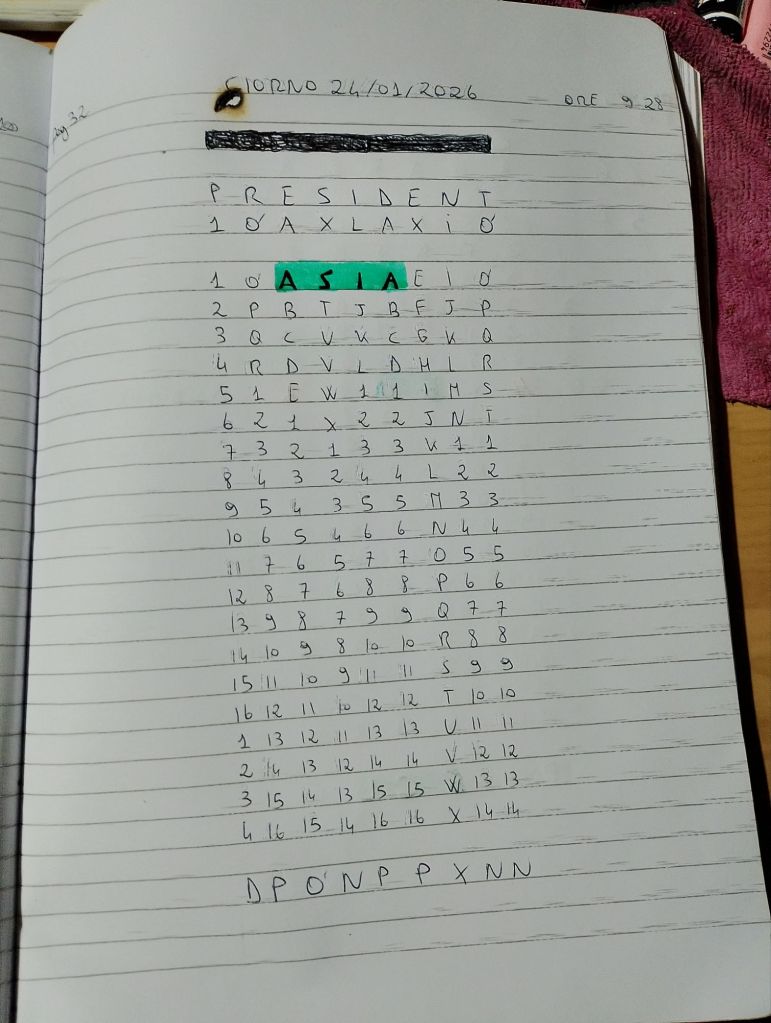 GIORNO 24/01/2026 ORE 9 28
Pag 32
P R E S I D E N T
1 O' A X L A X i O'
1 O' A S I A E I O'
2 P B T J B F J P
3 Q C U K C G K Q
4 R D V L D H L R
5 1 E W 1 1 I M S
6 2 1 X 2 2 J N T
7 3 2 1 3 3 K 1 1
8 4 3 2 4 4 L 2 2
9 5 4 3 5 5 M 3 3
10 6 5 4 6 6 N 4 4
11 7 6 5 7 7 O 5 5
12 8 7 6 8 8 P 6 6
13 9 8 7 9 9 Q 7 7
14 10 9 8 10 10 R 8 8
15 11 10 9 11 11 S 9 9
16 12 11 10 12 12 T 10 10
1 13 12 11 13 13 U 11 11
2 14 13 12 14 14 V 12 12
3 15 14 13 15 15 W 13 13
4 16 15 14 16 16 X 14 14
D P O' N P P X N N